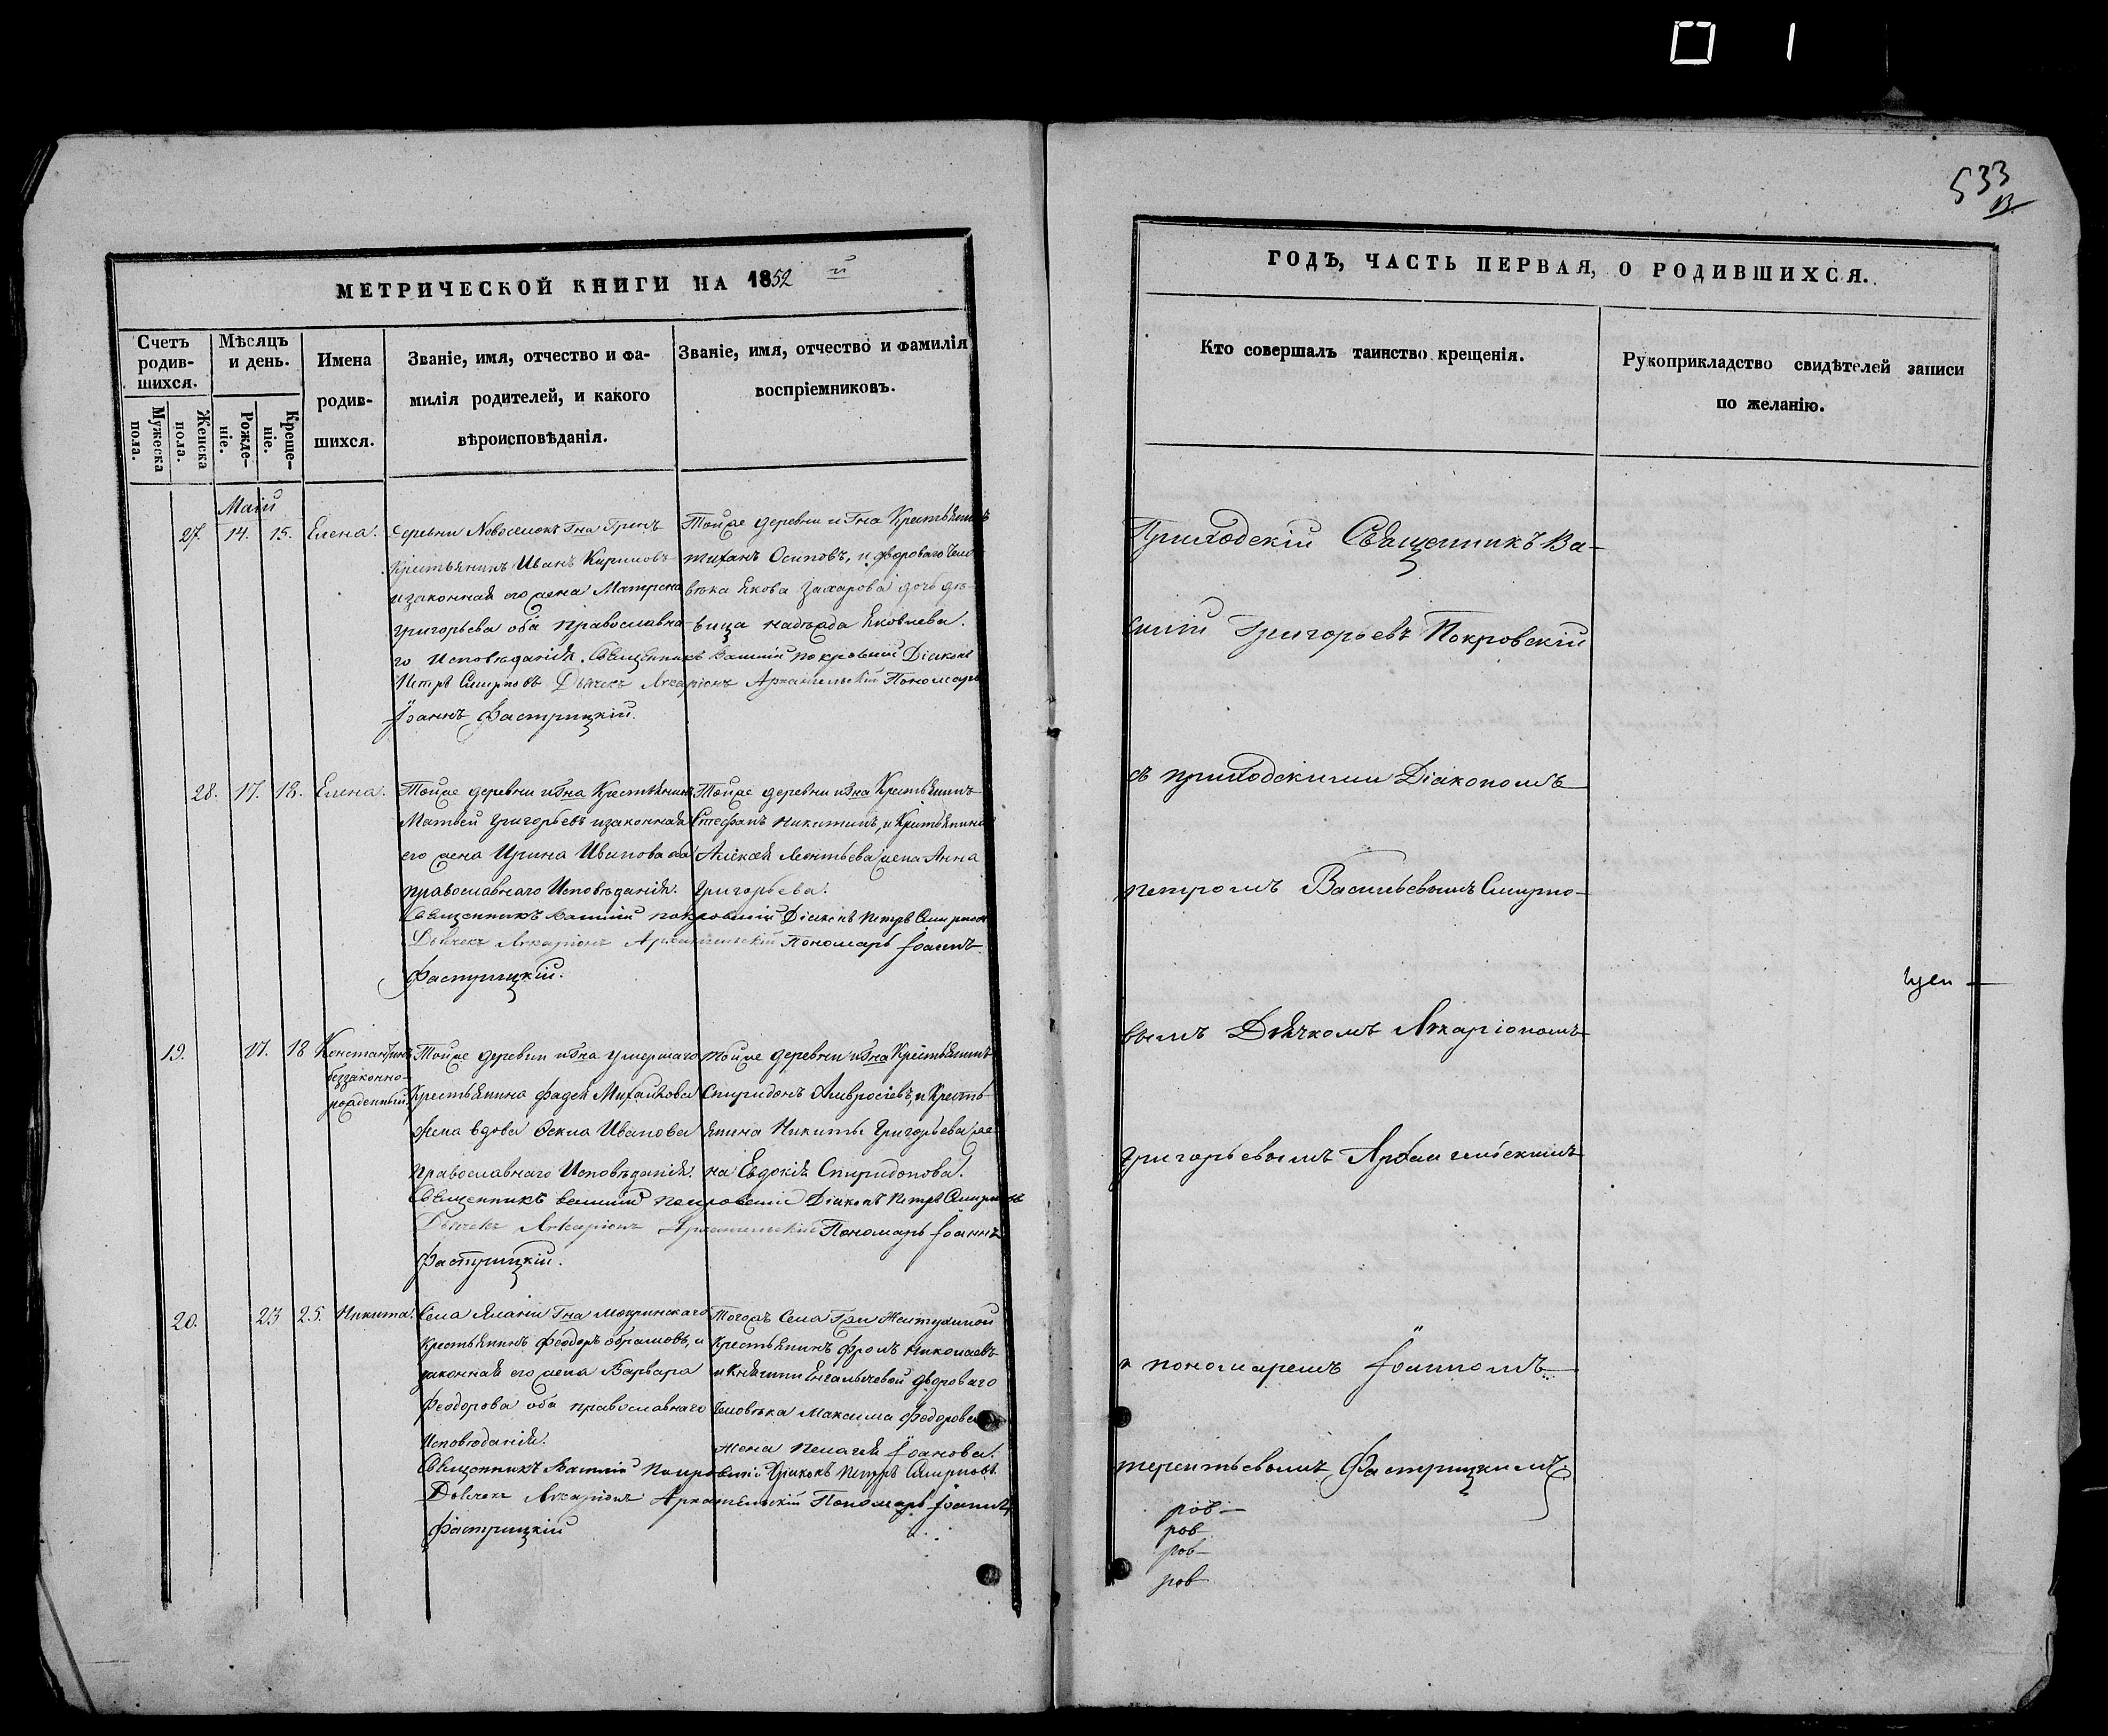 533
МЕТРИЧЕСКОЙ КНИГИ НА 1852 й
Счетъ родив-шихся.
Мужеска пола.
Женска пола.
Мѣсяцъ и день.
Рожде-ніе.
Креще-ніе.
Имена родив-шихся.
Званіе, имя, отчество и фа-
милія родителей, и какого
вѣроисповѣданія.
Званіе, имя, отчество и фамилія
воспріемниковъ.
Маій
27. 14. 15. Елена.
деревни Новоселокъ Гна
Крестьянинъ Иванъ Кириловъ
и законная его жена Матрена
Григорьева оба православна-
го Исповѣданія. Священникъ Василій Покровскій Діаконъ
Петръ Смирновъ Дьячекъ Иларіонъ Архангельскій Пономарь
Іоаннъ Фастрицкій.
Тойже деревни и Гна Крестьянинъ
Осиповъ, и двороваго Чело-
вѣка Якова Захарова дочь дѣ-
вица Надежда Яковлева.
28. 17. 18. Елена.
Тойже деревни и Гна Крестьянинъ
Матвей Григорьевъ и законная
его жена Ирина Иванова оба
православнаго Исповѣданія.
Священникъ Василій Покровскій Діаконъ Петръ Смирновъ
Дьячекъ Иларіонъ Архангельскій Пономарь Іоаннъ
Фастрицкій.
Тойже деревни и Гна Крестьянинъ
Стефанъ Никитинъ, и Крестьянина
Алексея Леонтьева жена Анна
Григорьева.
19. 17. 18 Константинъ
беззаконно-
рожденный.
Тойже деревни и Гна умершаго
Крестьянина Фадея Михайлова
жена вдова Фекла Иванова
православнаго Исповѣданія.
Священникъ Василій Покровскій Діаконъ Петръ Смирновъ
Дьячекъ Иларіонъ Архангельскій Пономарь Іоаннъ
Фастрицкій.
Тойже деревни и Гна Крестьянинъ
Спиридонъ Амвросіевъ, и Кресть-
янина Никиты Григорьева же-
на Евдокія Спиридонова.
20. 23 25. Никита.
Села Гна
Крестьянинъ Феодоръ и
законная его жена Варвара
Феодорова оба православнаго
Исповѣданія.
Священникъ Василій Покровскій Діаконъ Петръ Смирновъ
Дьячекъ Иларіонъ Архангельскій Пономарь Іоаннъ
Фастрицкій
Тогожъ Села
Крестьянинъ Фролъ Николаевъ
и Княгини Енгалычевой двороваго
Человѣка Максима Федорова
жена Пелагея Іоанова.
ГОДЪ, ЧАСТЬ ПЕРВАЯ, О РОДИВШИХСЯ.
Кто совершалъ таинство крещенія.
Рукоприкладство свидѣтелей записи
по желанію.
Приходскій Священникъ Ва-
силій Григорьевъ Покровскій
съ приходскими Діакономъ
Петромъ Васильевымъ Смирно-
вымъ Дьячкомъ Иларіономъ
Григорьевымъ Архангельскимъ
и пономаремъ Іоанномъ
Терентьевымъ Фастрицкимъ
ров-
ров-
ров-
ров